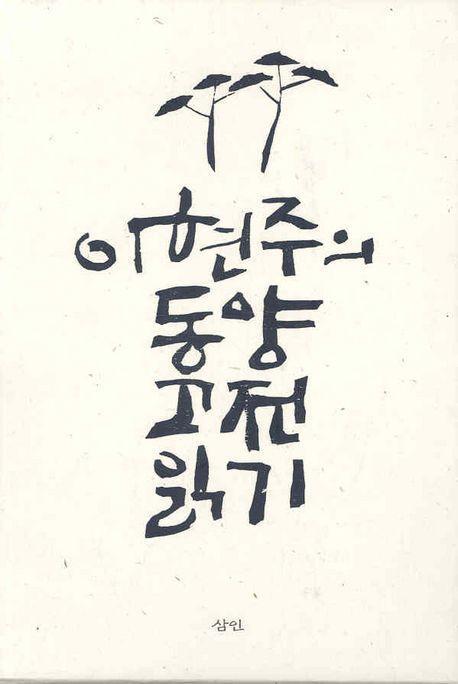 이현주의
동양
고전
읽기
삼인